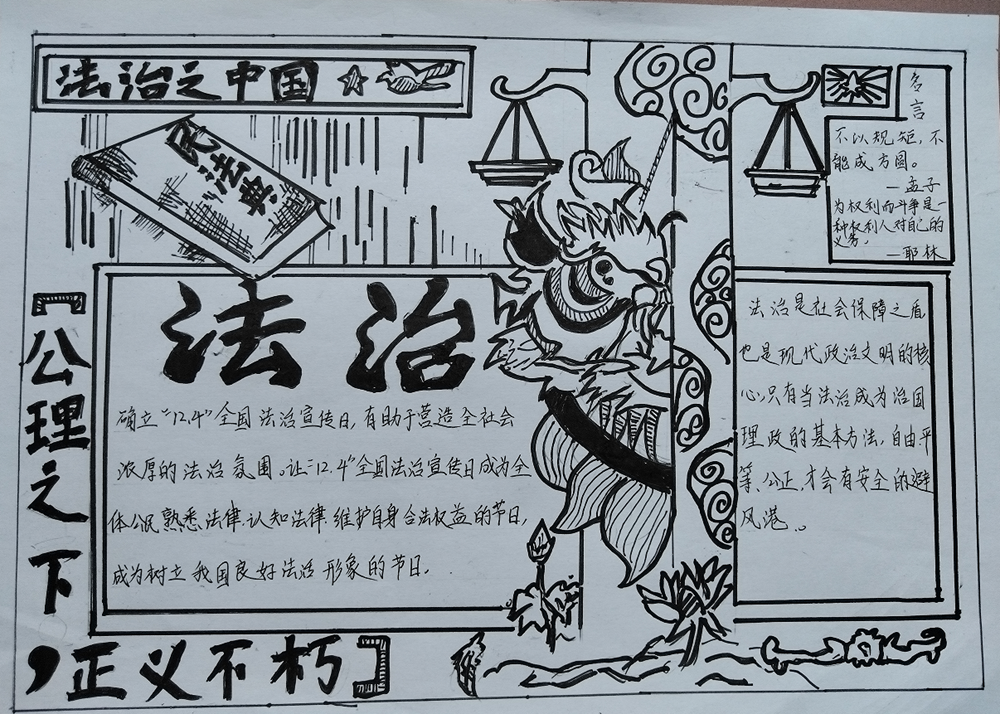 法治之中国
民法典
名言
不以规矩，不
能成方圆。
—孟子
为权利而斗争是一
种权利人对自己的
义务。
—耶林
法治
确立“12.4”全国法治宣传日，有助于营造全社会
浓厚的法治氛围。让“12.4”全国法治宣传日成为全
体公民熟悉法律、认知法律、维护自身合法权益的节日，
成为树立我国良好法治形象的节日。
法治是社会保障之盾
也是现代政治文明的核
心，只有当法治成为治国
理政的基本方法，自由平
等、公正，才会有安全的避
风港。
【公理之下
，正义不朽】